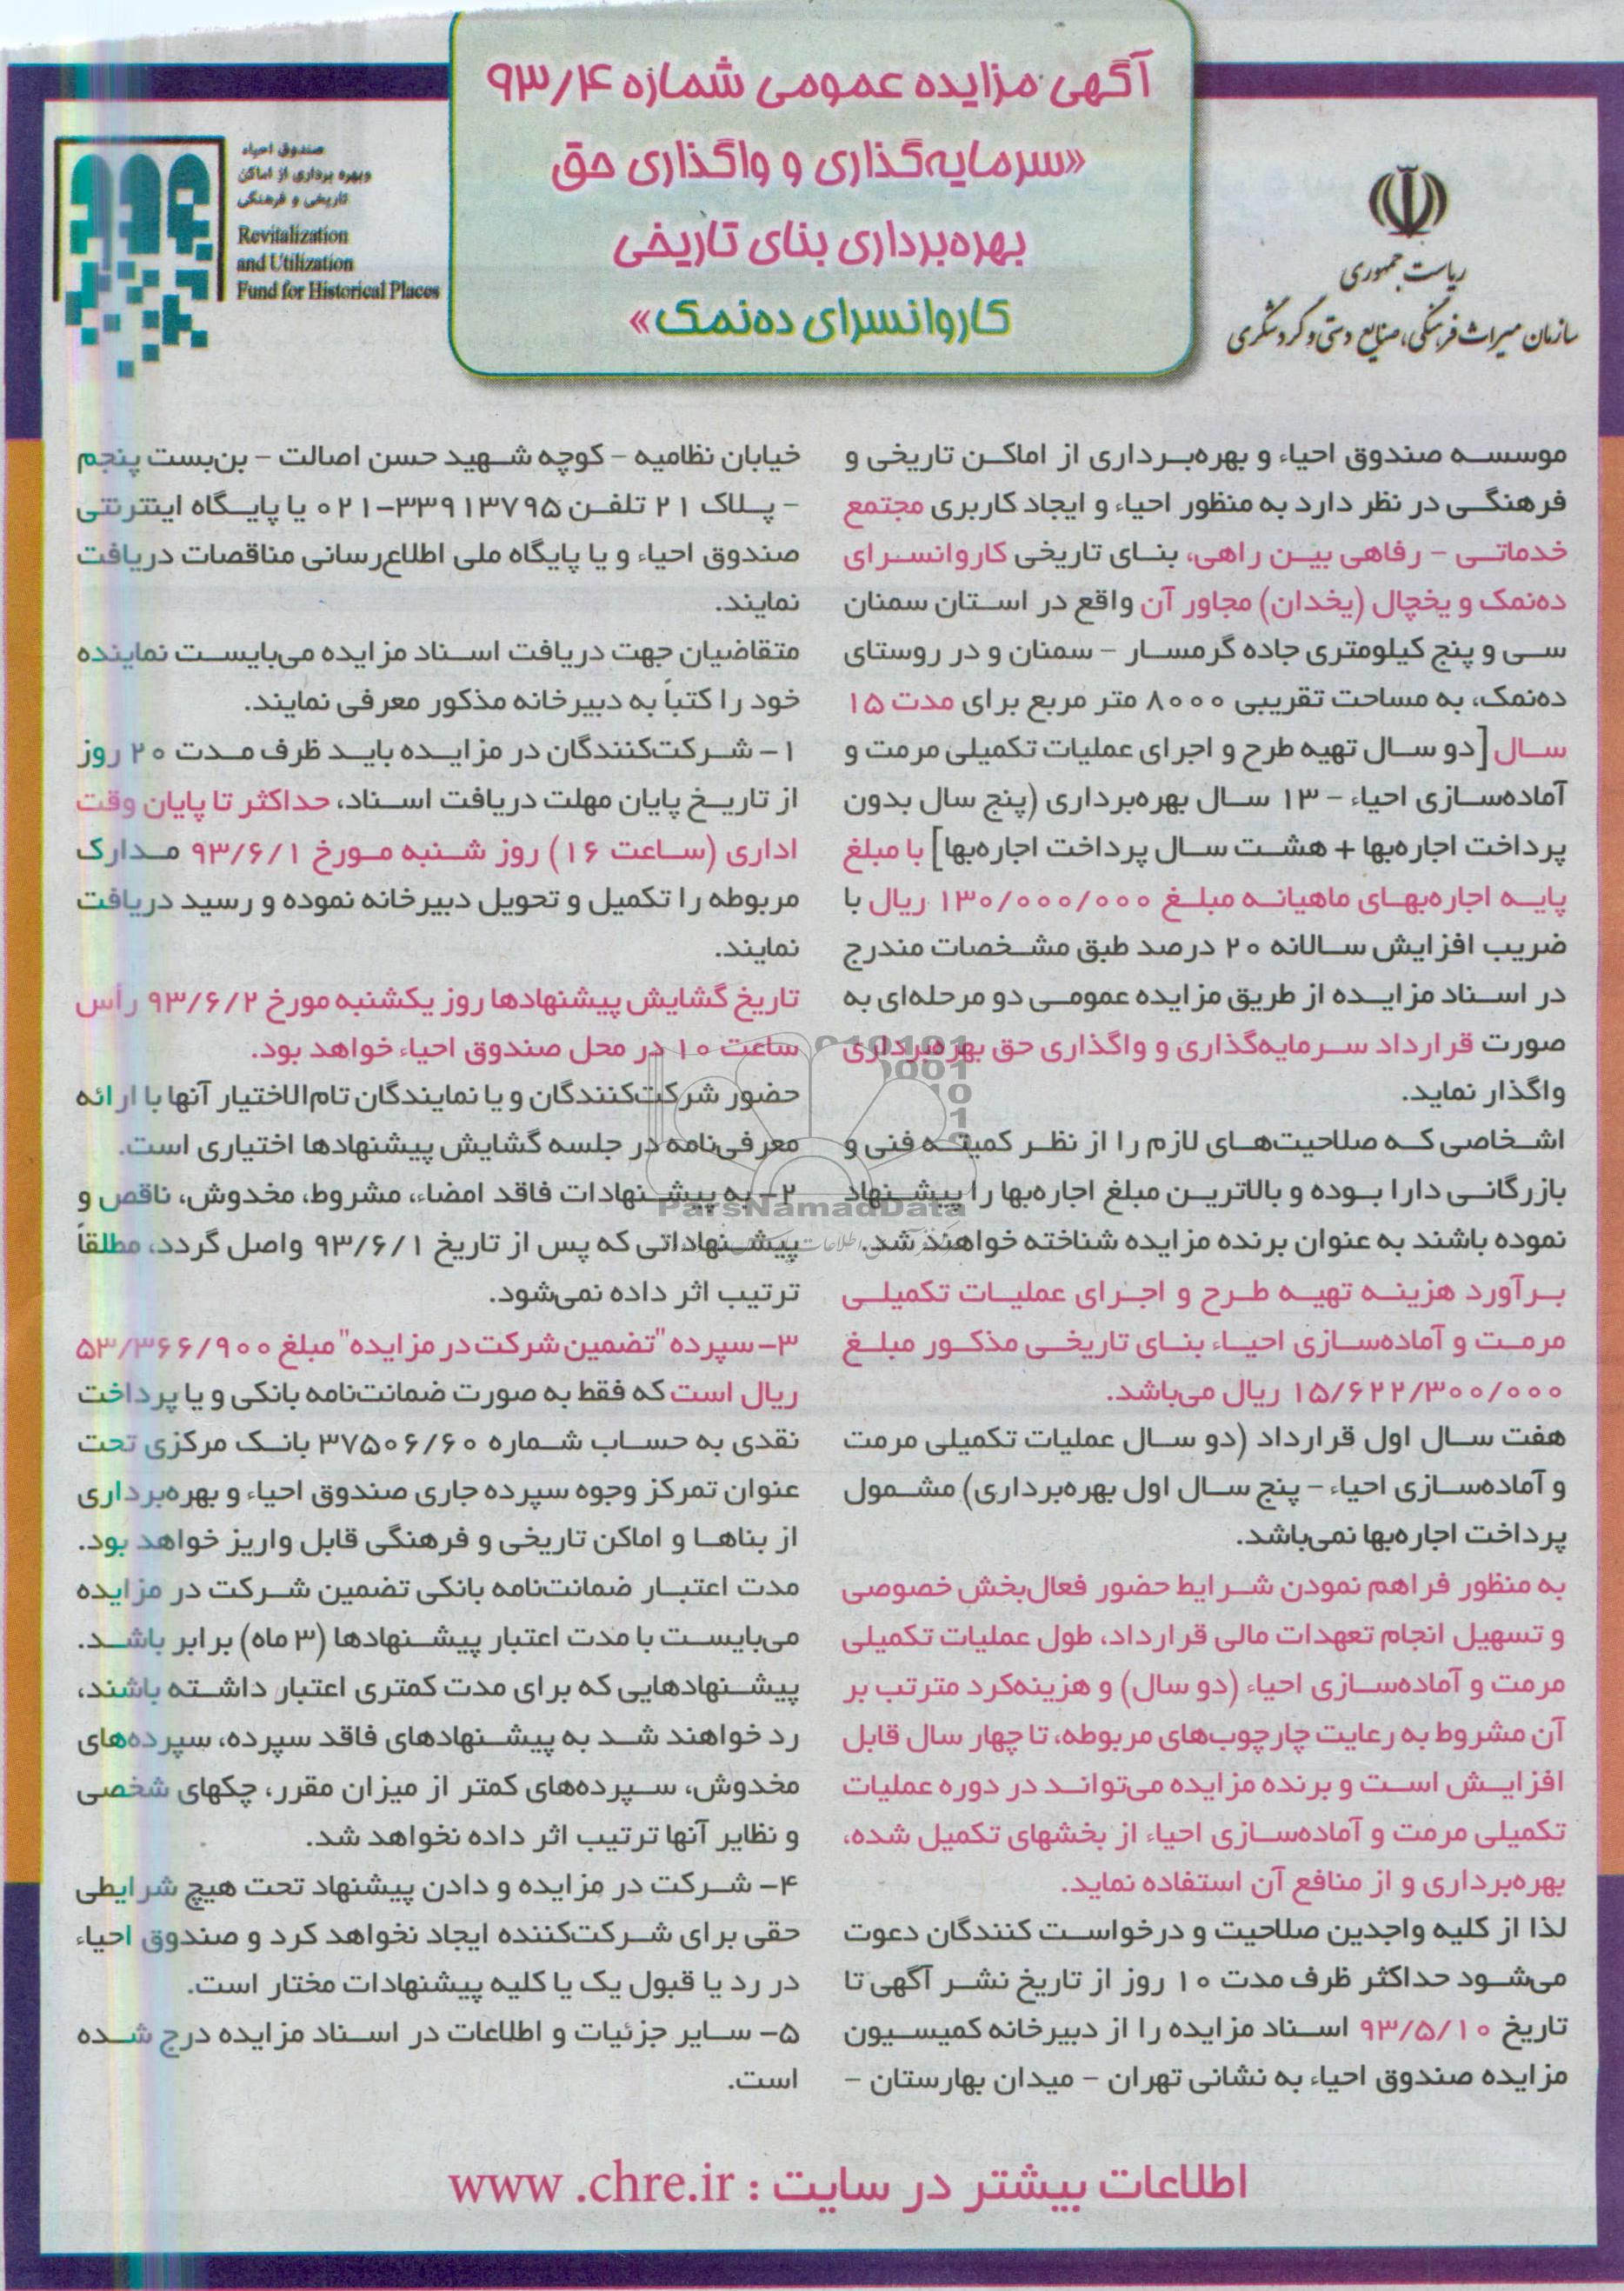 آگهی مزایده عمومی شماره ۹۳/۴
«سرمایه‌گذاری و واگذاری حق
بهره‌برداری بنای تاریخی
کاروانسرای ده‌نمک»
ریاست جمهوری
سازمان میراث فرهنگی، صنایع دستی و گردشگری
صندوق احیاء
وبهره برداری از اماکن
تاریخی و فرهنگی
Revitalization
and Utilization
Fund for Historical Places
موسسه صندوق احیاء و بهره‌برداری از اماکن تاریخی و
فرهنگی در نظر دارد به منظور احیاء و ایجاد کاربری مجتمع
خدماتی - رفاهی بین راهی، بنای تاریخی کاروانسرای
ده‌نمک و یخچال (یخدان) مجاور آن واقع در استان سمنان
سی و پنج کیلومتری جاده گرمسار - سمنان و در روستای
ده‌نمک، به مساحت تقریبی ۸۰۰۰ متر مربع برای مدت ۱۵
سال [دو سال تهیه طرح و اجرای عملیات تکمیلی مرمت و
آماده‌سازی احیاء - ۱۳ سال بهره‌برداری (پنج سال بدون
پرداخت اجاره‌بها + هشت سال پرداخت اجاره‌بها] با مبلغ
پایه اجاره‌بهای ماهیانه مبلغ ۱۳۰/۰۰۰/۰۰۰ ریال با
ضریب افزایش سالانه ۲۰ درصد طبق مشخصات مندرج
در اسناد مزایده از طریق مزایده عمومی دو مرحله‌ای به
صورت قرارداد سرمایه‌گذاری و واگذاری حق بهره‌برداری
واگذار نماید.
اشخاصی که صلاحیت‌های لازم را از نظر کمیته فنی و
بازرگانی دارا بوده و بالاترین مبلغ اجاره‌بها را پیشنهاد
نموده باشند به عنوان برنده مزایده شناخته خواهند شد.
برآورد هزینه تهیه طرح و اجرای عملیات تکمیلی
مرمت و آماده‌سازی احیاء بنای تاریخی مذکور مبلغ
۱۵/۶۲۲/۳۰۰/۰۰۰ ریال می‌باشد.
هفت سال اول قرارداد (دو سال عملیات تکمیلی مرمت
و آماده‌سازی احیاء - پنج سال اول بهره‌برداری) مشمول
پرداخت اجاره‌بها نمی‌باشد.
به منظور فراهم نمودن شرایط حضور فعال‌بخش خصوصی
و تسهیل انجام تعهدات مالی قرارداد، طول عملیات تکمیلی
مرمت و آماده‌سازی احیاء (دو سال) و هزینه‌کرد مترتب بر
آن مشروط به رعایت چارچوب‌های مربوطه، تا چهار سال قابل
افزایش است و برنده مزایده می‌تواند در دوره عملیات
تکمیلی مرمت و آماده‌سازی احیاء از بخشهای تکمیل شده،
بهره‌برداری و از منافع آن استفاده نماید.
لذا از کلیه واجدین صلاحیت و درخواست کنندگان دعوت
می‌شود حداکثر ظرف مدت ۱۰ روز از تاریخ نشر آگهی تا
تاریخ ۹۳/۵/۱۰ اسناد مزایده را از دبیرخانه کمیسیون
مزایده صندوق احیاء به نشانی تهران - میدان بهارستان -
خیابان نظامیه - کوچه شهید حسن اصالت - بن‌بست پنجم
- پلاک ۲۱ تلفن ۳۳۹۱۳۷۹۵-۰۲۱ یا پایگاه اینترنتی
صندوق احیاء و یا پایگاه ملی اطلاع‌رسانی مناقصات دریافت
نمایند.
متقاضیان جهت دریافت اسناد مزایده می‌بایست نماینده
خود را کتباً به دبیرخانه مذکور معرفی نمایند.
۱- شرکت‌کنندگان در مزایده باید ظرف مدت ۲۰ روز
از تاریخ پایان مهلت دریافت اسناد، حداکثر تا پایان وقت
اداری (ساعت ۱۶) روز شنبه مورخ ۹۳/۶/۱ مدارک
مربوطه را تکمیل و تحویل دبیرخانه نموده و رسید دریافت
نمایند.
تاریخ گشایش پیشنهادها روز یکشنبه مورخ ۹۳/۶/۲ رأس
ساعت ۱۰ در محل صندوق احیاء خواهد بود.
حضور شرکت‌کنندگان و یا نمایندگان تام‌الاختیار آنها با ارائه
معرفی‌نامه در جلسه گشایش پیشنهادها اختیاری است.
۲- به پیشنهادات فاقد امضاء، مشروط، مخدوش، ناقص و
پیشنهاداتی که پس از تاریخ ۹۳/۶/۱ واصل گردد، مطلقاً
ترتیب اثر داده نمی‌شود.
۳- سپرده "تضمین شرکت در مزایده" مبلغ ۵۳/۳۶۶/۹۰۰
ریال است که فقط به صورت ضمانت‌نامه بانکی و یا پرداخت
نقدی به حساب شماره ۳۷۵۰۶/۶۰ بانک مرکزی تحت
عنوان تمرکز وجوه سپرده جاری صندوق احیاء و بهره‌برداری
از بناها و اماکن تاریخی و فرهنگی قابل واریز خواهد بود.
مدت اعتبار ضمانت‌نامه بانکی تضمین شرکت در مزایده
می‌بایست با مدت اعتبار پیشنهادها (۳ ماه) برابر باشد.
پیشنهادهایی که برای مدت کمتری اعتبار داشته باشند،
رد خواهند شد به پیشنهادهای فاقد سپرده، سپرده‌های
مخدوش، سپرده‌های کمتر از میزان مقرر، چکهای شخصی
و نظایر آنها ترتیب اثر داده نخواهد شد.
۴- شرکت در مزایده و دادن پیشنهاد تحت هیچ شرایطی
حقی برای شرکت‌کننده ایجاد نخواهد کرد و صندوق احیاء
در رد یا قبول یک یا کلیه پیشنهادات مختار است.
۵- سایر جزئیات و اطلاعات در اسناد مزایده درج شده
است.
اطلاعات بیشتر در سایت : www .chre.ir
ParsNamadData